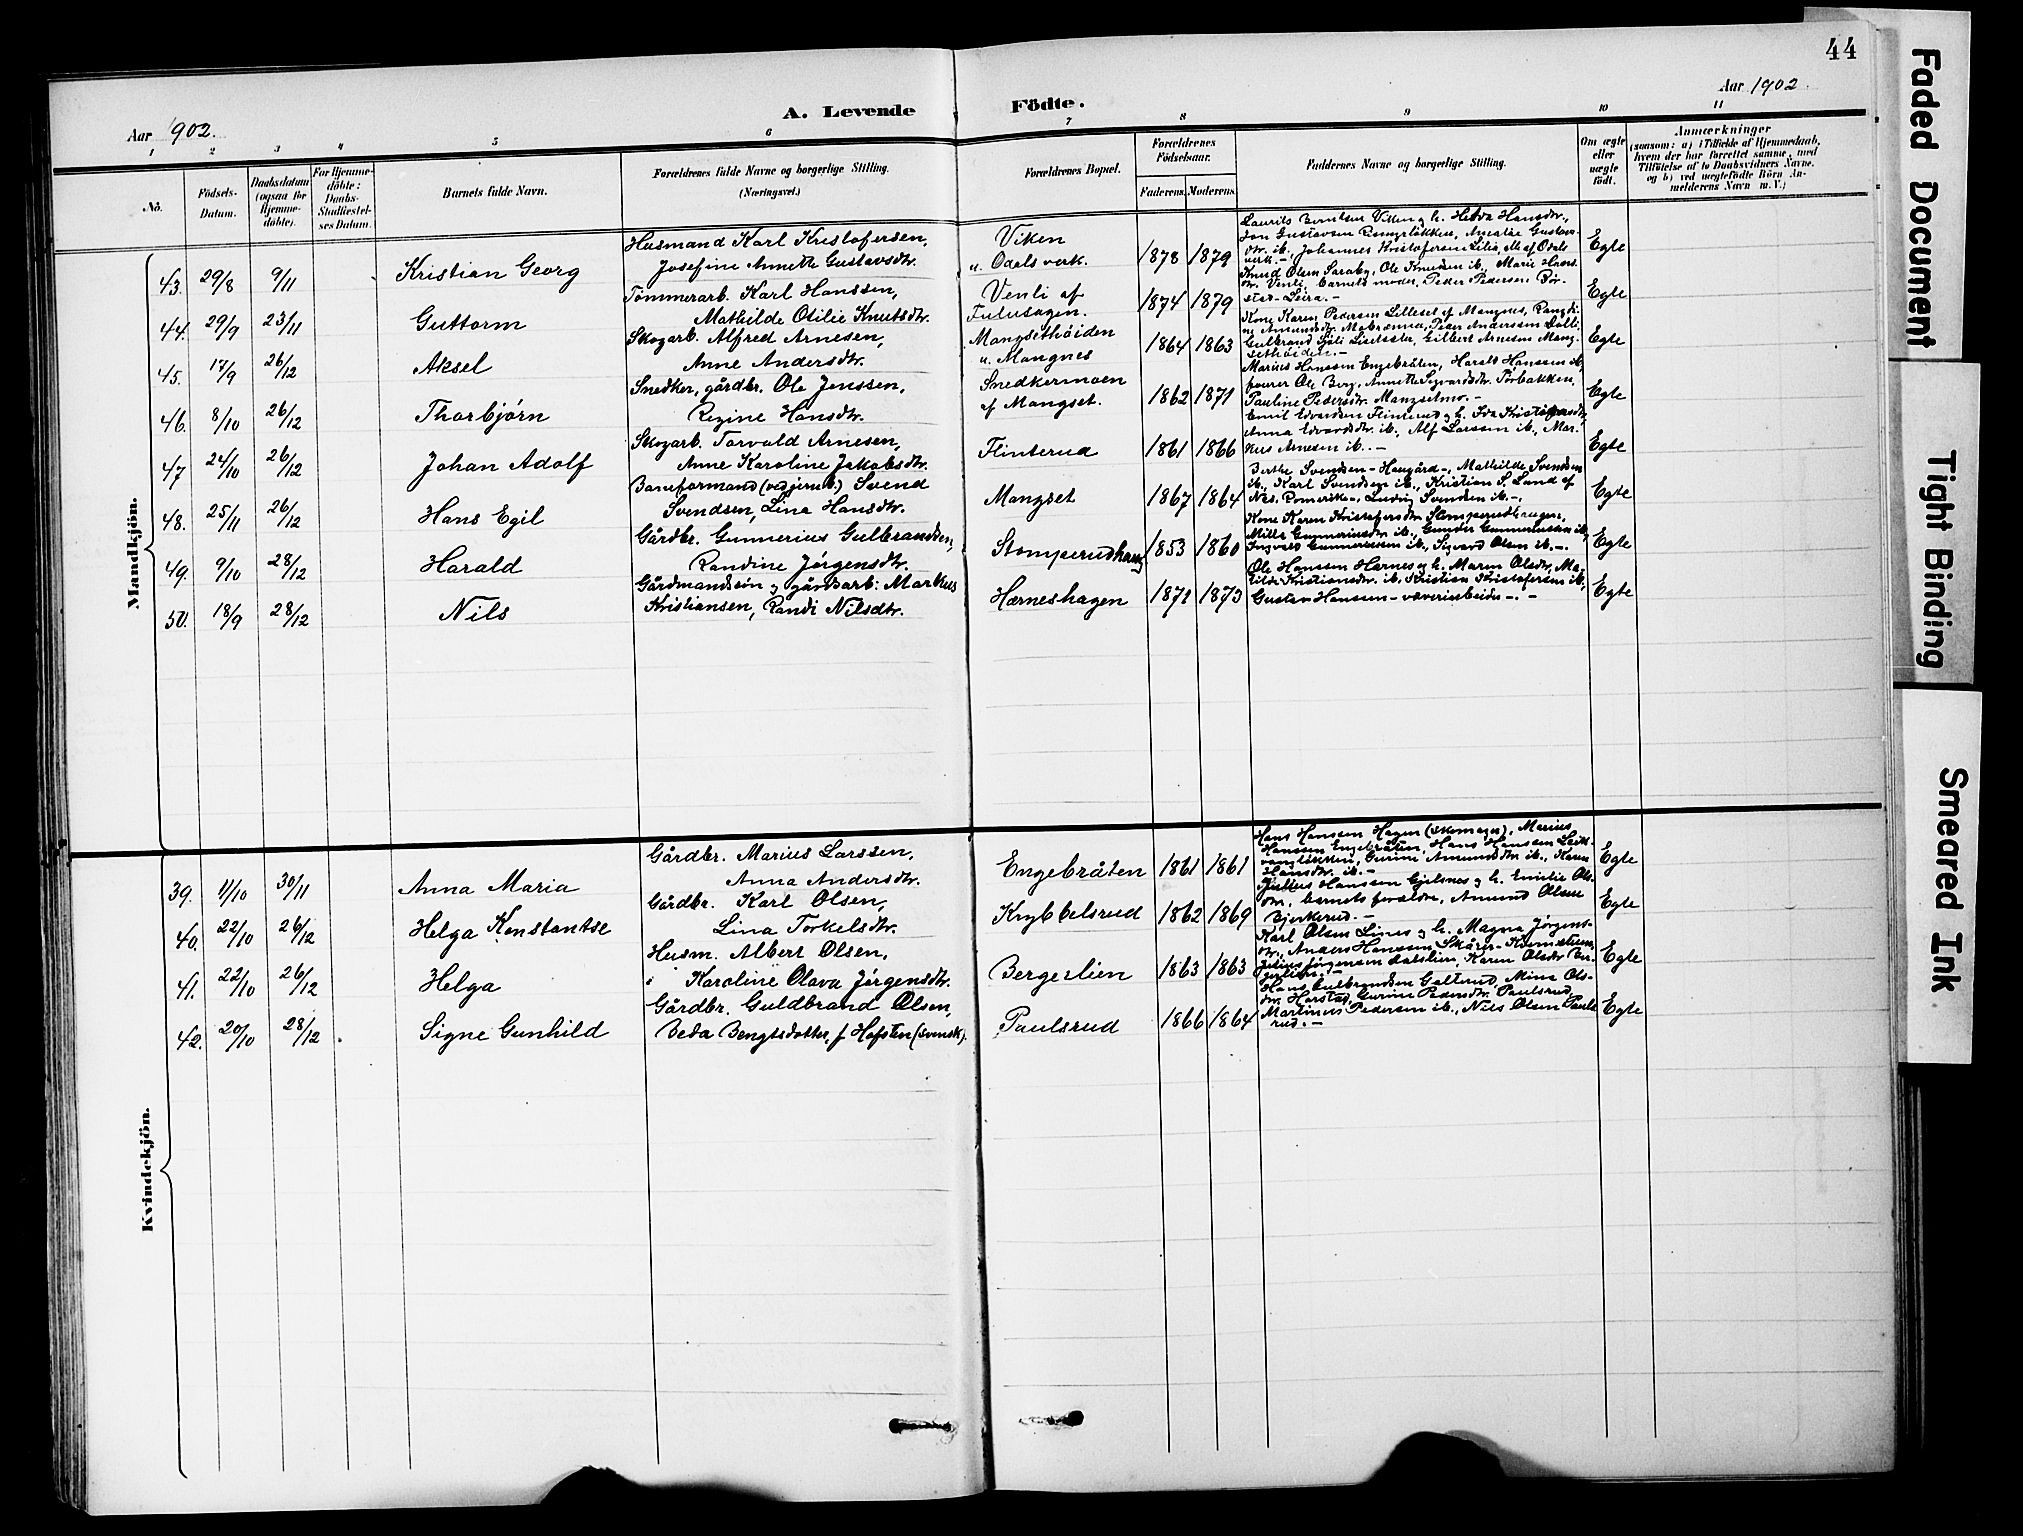 44
Aar 1902.
A. Levende Födte.
Aar 1902.
1 2 3 4 5 6 7 8 9 10 11
No.
Födsels-Datum.
Daabsdatum (ogsaa for Hjemme-döbte).
For Hjemme-döbte: Daabs-Stadfæstel-ses Datum.
Barnets fulde Navn.
Forældrenes fulde Navne og borgerlige Stilling.
(Næringsvei.)
Forældrenes Bopæl.
Forældrenes Födselsaar.
Faderens. Moderens.
Faddernes Navne og borgerlige Stilling.
Om ægte eller uægte födt.
Anmærkninger
(saasom: a) i Tilfælde af Hjemmedaab, hvem der har forrettet samme, med Tilföielse af to Daabsvidners Navne, og b) ved uægtefödte Börn An-melderens Navn m. V.)
Mandkjön.
43. 29/8 9/11 Kristian Georg
Husmand Karl Kristofersen,
Josefine Annette Gustavsdtr.
Viken
u. Odals verk. 1878 1879
Laurits Berntsen Viken og h. Helda Hansdtr.,
Jon Gustavsen Rengsløkken, Amalie Gustavs-
dtr. ib., Johannes Kristofersen Lilis, M af Odals
verk. - Egte
44. 29/9 23/11 Guttorm
Tømmerarb. Karl Hanssen,
Mathilde Otilie Knutsdtr.
Venli af
Fulusagen. 1874 1879
Knud Olsen Saraby, Ole Knudsen ib., Marie Hans-
dtr. Venli, barnets moder, Peder Pedersen Bør-
stad-Leira. - Egte
45. 17/9 26/12 Aksel
Skogarb. Alfred Arnesen,
Anne Andersdtr.
Mangsethøiden
u. Mangnes 1864 1863
Kone Karen Pedersen Lilleset af Mangnes, Randi-
ne Amundsdtr. Mobrænna, Peder Anderssen
Gulbrand, Gilbert Arnesen Mang-
sethøiden. - Egte
46. 8/10 26/12 Thorbjørn
Snedker, gårdbr. Ole Jenssen,
Regine Hansdtr.
Snedkermoen
af Mangset. 1862 1871
Marius Hanssen Engebråten, Harald Hanssen ib,
Ole Berg, Annette Sigvardsdtr. Torbakken,
Pauline Pedersdtr. Mangsetmo. - Egte
47 24/10 26/12 Johan Adolf
Skogarb. Torvald Arnesen,
Anne Karoline Jakobsdtr.
Flinterud 1861 1866
Emil Edvardsen Flinterud og h. Ida Kristofersdtr,
Anna Edvardsdtr. ib., Alf Larssen ib., Mar-
kus Arnesen ib. - Egte
48. 25/11 26/12 Hans Egil
Baneformand (ved jernb.) Svend
Svendsen, Lina Hansdtr.
Mangset 1867 1864
Berthe Svendsen-Haugård-, Mathilde Svendsen
ib., Karl Svendsen ib., Kristian S. Lund af
Nes, Romerike-, Ludvig Svendsen ib. -. Egte
49. 9/10 28/12 Harald
Gårdbr. Gunnerius Gulbrandsen,
Randine Jørgensdtr.
Stomperudhaug 1853 1860
Kone Karen Kristofersdtr. Stomperudhaugen,
Milla Gunneriusdtr. ib., Gunder Gunneriussen ib,
Ingvald Gunneriussen ib., Sigvard Olsen ib. -. Egte
50. 18/9 28/12 Nils
Gårdmandssøn og gårdsarb: Markus
Kristiansen, Randi Nilsdtr.
Hærneshagen 1871 1873
Ole Hanssen Hærnes og h. Maren Olsdtr, Ma-
tilde Kristiansdtr. ib., Kristian Kristofersen ib.,
Gustav Hanssen - Egte
Kvindekjön.
39. 11/10 30/11 Anna Maria
Gårdbr. Marius Larssen,
Anna Andersdtr.
Engebråten 1861 1861
Hans Hanssen Hagen (skomager), Marius
Hanssen Engebråten, Hans Hanssen
Gurine Amundsdtr. ib., Karen
Hansdtr. ib. - Egte
40. 22/10 26/12 Helga Konstantse
Gårdbr. Karl Olsen,
Lina Torkelsdtr.
Knybbelsrud 1862 1869
Julius Hanssen Gjelsnes og h. Emilie Ols-
dtr, barnets forældre, Amund Olsen
Bjerkerud. - Egte
41. 22/10 26/12 Helga
Husm. Albert Olsen,
Karoline Olava Jørgensdtr.
Bergerlien 1863 1863
Karl Olsen Lines og h. Magna Jørgens-
dtr., Anders Hanssen Skårer-Kvernstuen,
Julius Jørgensen Dalslien, Karen Olsdtr Ber-
gerlien. - Egte
42. 20/10 28/12 Signe Gunhild
Gårdbr. Guldbrand Olsen,
Beda Bengtsdotter, f Hofsten (svensk).
Paulsrud 1866 1864
Hans Gulbrandsen Galterud, Mina Ols-
dtr. Harstad, Gurine Pedersdtr. Paulsrud,
Martinus Pedersen ib., Nils Olsen Pauls-
rud. - Egte
Faded Document
Tight Binding
Smeared Ink